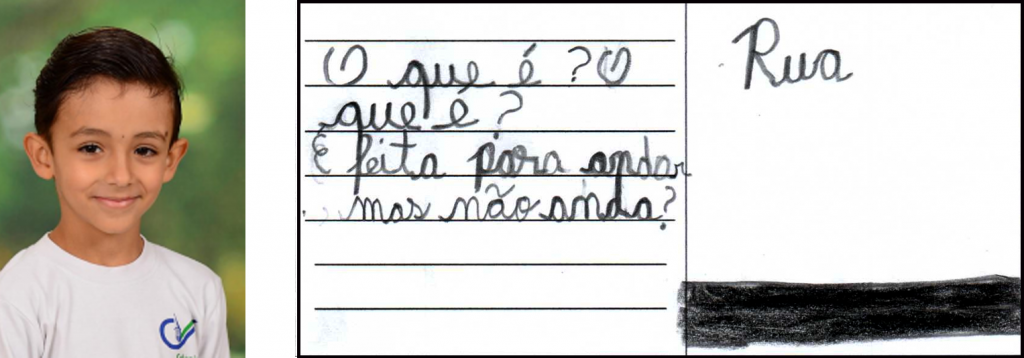 O que é? O
que é?
É feita para andar
mas não anda?
Rua